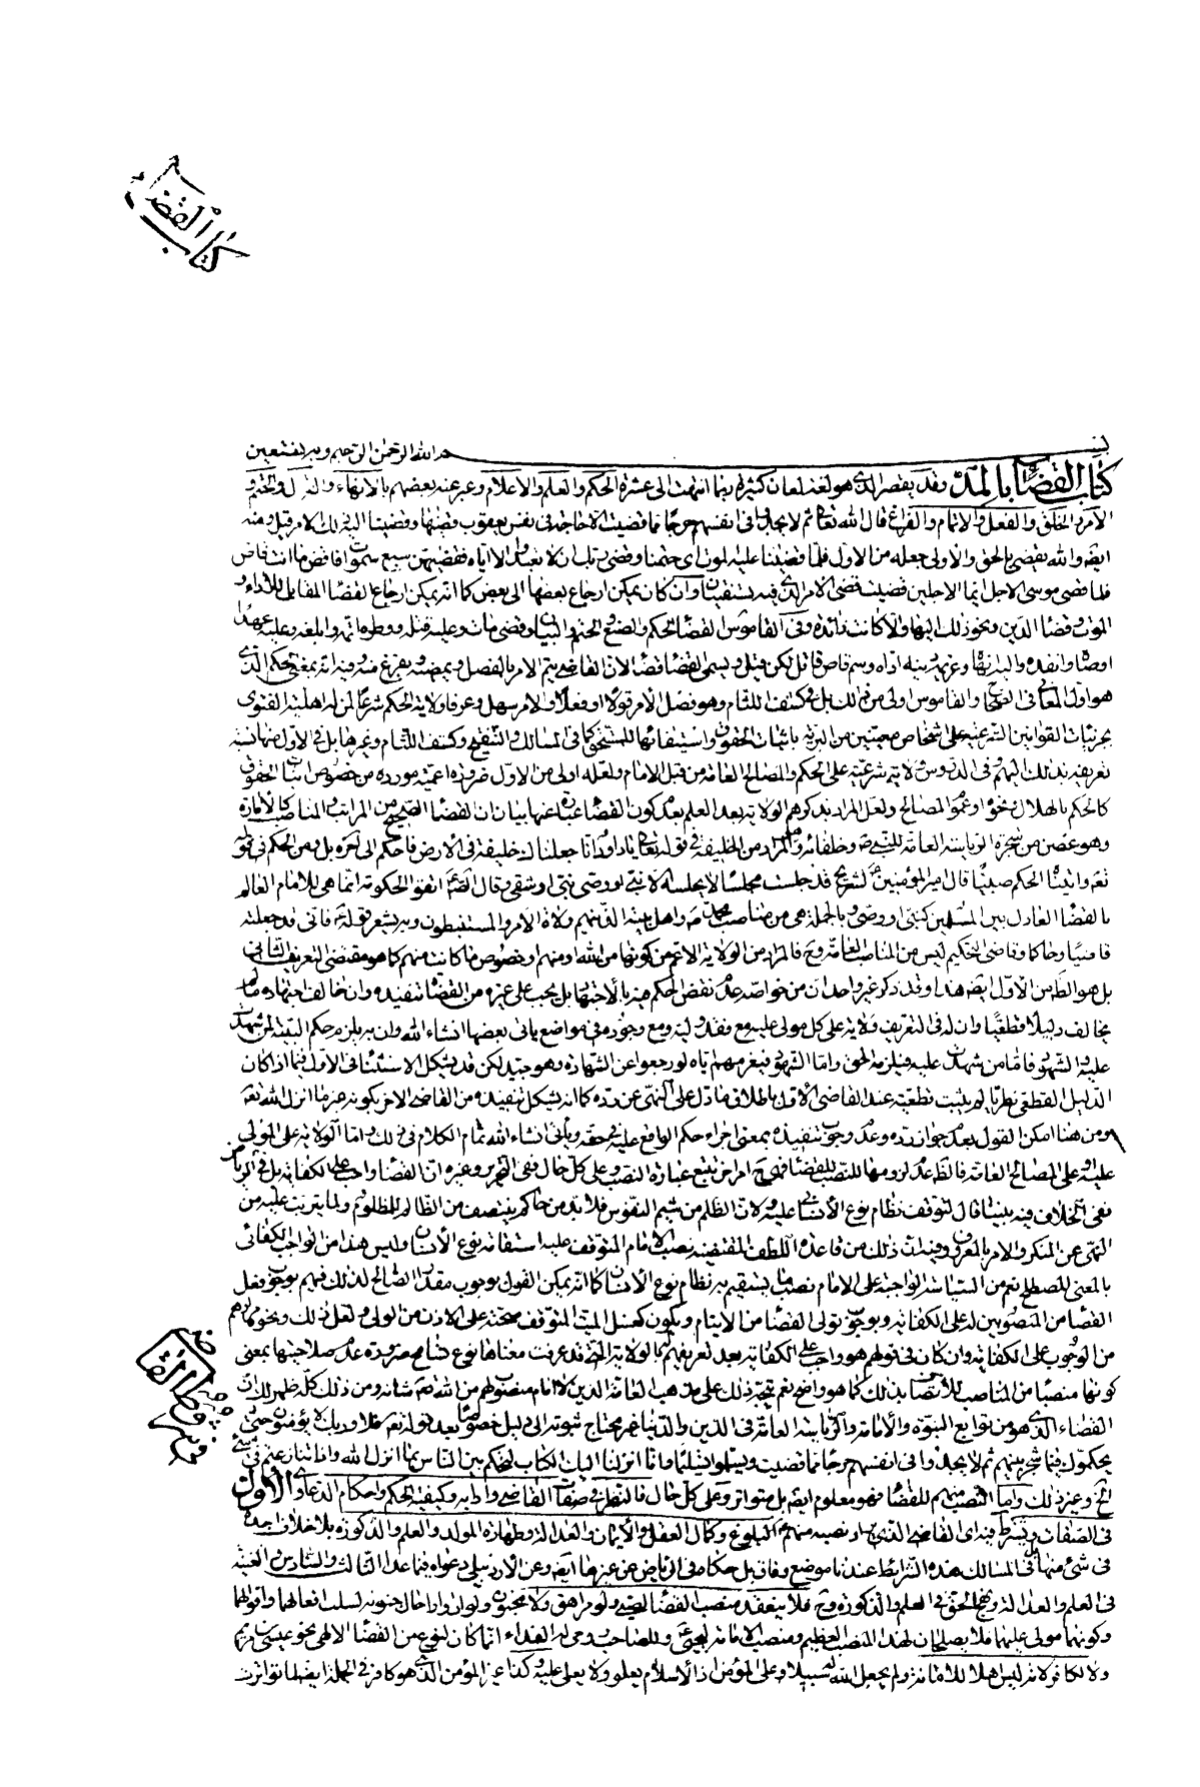 كتاب القضاء
بسم الله الرحمن الرحيم وبه نستعين
كتاب القضاء بالمد وقد يقصر الذي هو لغة لمعان كثيرة ربما انهيت الى عشرة الحكم والعلم والاعلام وعبر عنه بعضهم بالانهاء والقول والحتم و
الامر والخلق والفعل والاتمام والفراغ قال الله تعالى ثم لا يجدوا في انفسهم حرجا مما قضيت الا حاجة في نفس يعقوب قضيها وقضينا اليه ذلك الامر قيل ومنه
ايضا والله يقضي بالحق والاولى جعله من الاول فلما قضينا عليه الموت اي حتمنا وقضى ربك ان لا تعبدوا الا اياه فقضيهن سبع سموات فاقض ما انت قاض
فلما قضى موسى الاجل ايما الاجلين قضيت قضى الامر الذي فيه تستفتيان وان كان يمكن ارجاع بعضها الى بعض كما انه يمكن ارجاع القضاء المقابل للاداء و
الموت وقضاء الدين ونحو ذلك اليها والا كانت زائدة وفي القاموس القضاء الحكم والصنع والحتم والبيان وقضى مات وعليه قتله ووطره اتمه وابلغه وعليه عهدا
اوصاه وانفذه واليه انهاه وغريمه دينه اداه وسم قاض قاتل لكن قيل ويسمى القضاء قضاء لان القاضي يتم الامر بالفصل ويمضيه ويفرغ منه وفيه انه بمعنى الحكم الذي
هو اول المعاني في الصحاح والقاموس اولى من ذلك بل في كشف اللثام وهو فصل الامر قولا او فعلا والامر سهل وعرفا ولاية الحكم شرعا لمن له اهلية الفتوى
بجزئيات القوانين الشرعية على اشخاص معينين من البرية باثبات الحقوق واستيفائها للمستحق كما في المسالك والتنقيح وكشف اللثام وغيرها بل في الاول منها نسبة
تعريفه بذلك اليهم وفي الدروس ولاية شرعية على الحكم والمصالح العامة من قبل الامام ولعله اولى من الاول ضرورة اعمية مورده من خصوص اثبات الحقوق
كالحكم بالهلال ونحوه وعموم المصالح ولعل المراد بذكرهم الولاية بعد العلم بعدم كون القضاء عبارة عنها بيان ان القضاء الصحيح من المراتب والمناصب كالامارة
وهو غصن من شجرة الرياسة العامة للنبي ص وخلفائه وهو المراد من الخليفة في قوله تعالى يا داود انا جعلناك خليفة في الارض فاحكم الى اخره بل ومن الحكم في قوله
تعالى واتيناه الحكم صبيا قال امير المؤمنين ع لشريح قد جلست مجلسا لا يجلسه الا نبي او وصي نبي او شقي وقال الصادق ع اتقوا الحكومة انما هي للامام العالم
بالقضاء العادل بين المسلمين كنبي او وصي وبالجملة هي من مناصب محمد ص واهل بيته الذينهم ولاة الامر والمستنبطون وبه يشعر قوله ع فاني قد جعلته
قاضيا وحاكما وقاضي التحكيم ليس من المناصب العامة وح فالمراد من الولاية الاعم من كونها من الله او منهم وخصوص ما كانت منهم كما هو مقتضى التعريف الثاني
بل هو الظاهر من الاول ايضا هذا وقد ذكر غير واحد ان من خواصه عدم نقض الحكم فيه بالاجتهاد بل يجب على غيره من القضاة تنفيذه وان خالف اجتهاده ما لم
يخالف دليلا قطعيا وان له في التعريف ولاية على كل مولى عليه مع فقد وليه ومع وجوده في مواضع ياتي بعضها انشاء الله وان به يلزم حكم البينة لمن شهدت
عليه والشهود فاما من شهدت عليه فيلزمه الحق واما الشهود فيغرمهم اياه لو رجعوا عن الشهادة وهو جيد لكن قد يشكل الاستثناء في الاول فيما اذا كان
الدليل القطعي نظريا لم يثبت قطعيته عند القاضي الاول باطلاق ما دل على النهي عن رده كما انه يشكل تنفيذه من القاضي الاخر بكونه غير ما انزل الله تعالى
ومن هنا امكن القول بعدم جواز رده وعدم وجوب تنفيذه بمعنى اجراء حكم الواقع عليه في حقه وياتي انشاء الله تمام الكلام في ذلك واما الولاية على المولى
عليه او على المصالح العامة فالظاهر عدم لزومها للنصب للقضاء فهي ح امر اخر يتبع عبارة النصب وعلى كل حال ففي التحرير وغيره ان القضاء واجب على الكفاية بل في الرياض
نفى الخلاف فيه بيننا قال لتوقف نظام نوع الانسان عليه ولان الظلم من شيم النفوس فلا بد من حاكم ينتصف من الظالم للمظلوم ولما يترتب عليه من
النهي عن المنكر والامر بالمعروف وفيه ان ذلك من قاعدة اللطف المقتضية نصب الامام المتوقف عليه استقامة نوع الانسان وليس هذا من الواجب الكفائي
بالمعنى المصطلح نعم من السياسة الواجبة على الامام نصب ما يستقيم به نظام نوع الانسان كما انه يمكن القول بوجوب مقدمات الصالح لذلك فيهم بوجوب فعل
القضاء من المنصوبين له على الكفاية وبوجوب تولى القضاء من الامام ويكون كغسل الميت المتوقف صحته على الاذن من الولي ولعل ذلك ونحوه مرادهم
من الوجوب على الكفاية وان كان في قولهم هو واجب على الكفاية بعد تعريفهم له بالولاية التي قد عرفت معناها نوع تسامح ضرورة عدم صلاحيتها بمعنى
كونها منصبا من المناصب للاتصاف بذلك كما هو واضح نعم يتجه ذلك على مذهب العامة الذين لا امام منصوب لهم من الله تعالى شانه ومن ذلك كله ظهر لك ان
القضاء الذي هو من توابع النبوة والامامة والرياسة العامة في الدين والدنيا غير محتاج ثبوته الى دليل خصوصا بعد قوله تعالى فلا وربك لا يؤمنون حتى
يحكموك فيما شجر بينهم ثم لا يجدوا في انفسهم حرجا مما قضيت ويسلموا تسليما وانا انزلنا اليك الكتاب لتحكم بين الناس بما انزل الله واذا تنازعتم في شيء
الخ وغير ذلك واما النصب منهم للقضاء فهو معلوم ايضا بل متواتر وعلى كل حال فالنظر في صفات القاضي وادابه وكيفية الحكم واحكام الدعاوى الاول
في الصفات ويشترط فيه اي القاضي الذي يراد نصبه منهم ع البلوغ وكمال العقل والايمان والعدالة وطهارة المولد والعلم والذكورة بلا خلاف اجده
في شيء منها بل في المسالك هذه الشرائط عندنا موضع وفاق بل حكاه في الرياض عن غيرها ايضا وعن الاردبيلي دعواه فيما عدا الثالث والسادس والغنية
في العلم والعدالة ونهج الحق في العلم والذكورة وح فلا ينعقد منصب القضاء لصبي ولو مراهق ولا مجنون ولو ادوارا حال جنونه لسلب افعالهما واقوالهما
وكونهما مولى عليهما فلا يصلحان لهذا المنصب العظيم ومنصب الامامة ليحيى ع ولصاحب روحي له الفداء انما كان لنوع من القضاء الالهي نحو عيسى بن مريم
ولا لكافر لانه ليس اهلا للامانة ولم يجعل الله له سبيلا وعلى المؤمن اذ الاسلام يعلو ولا يعلى عليه وكذا غير المؤمن الذي هو كافر في الجملة ايضا لما تواترت
في شرائط القضاء